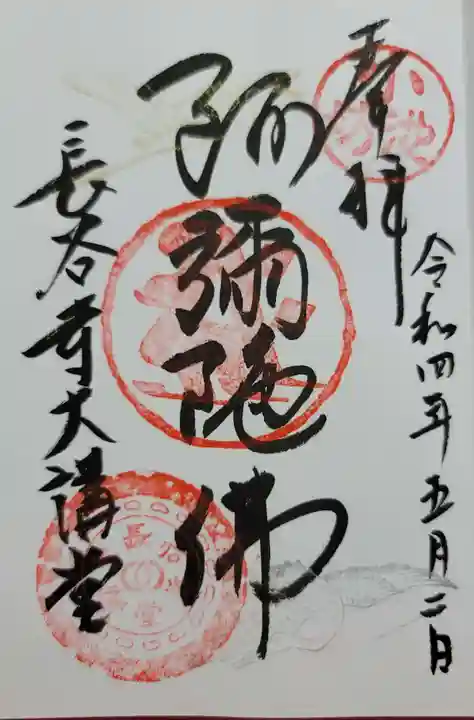 奉拝
令和四年五月二日
阿彌陀佛
長谷寺大講堂